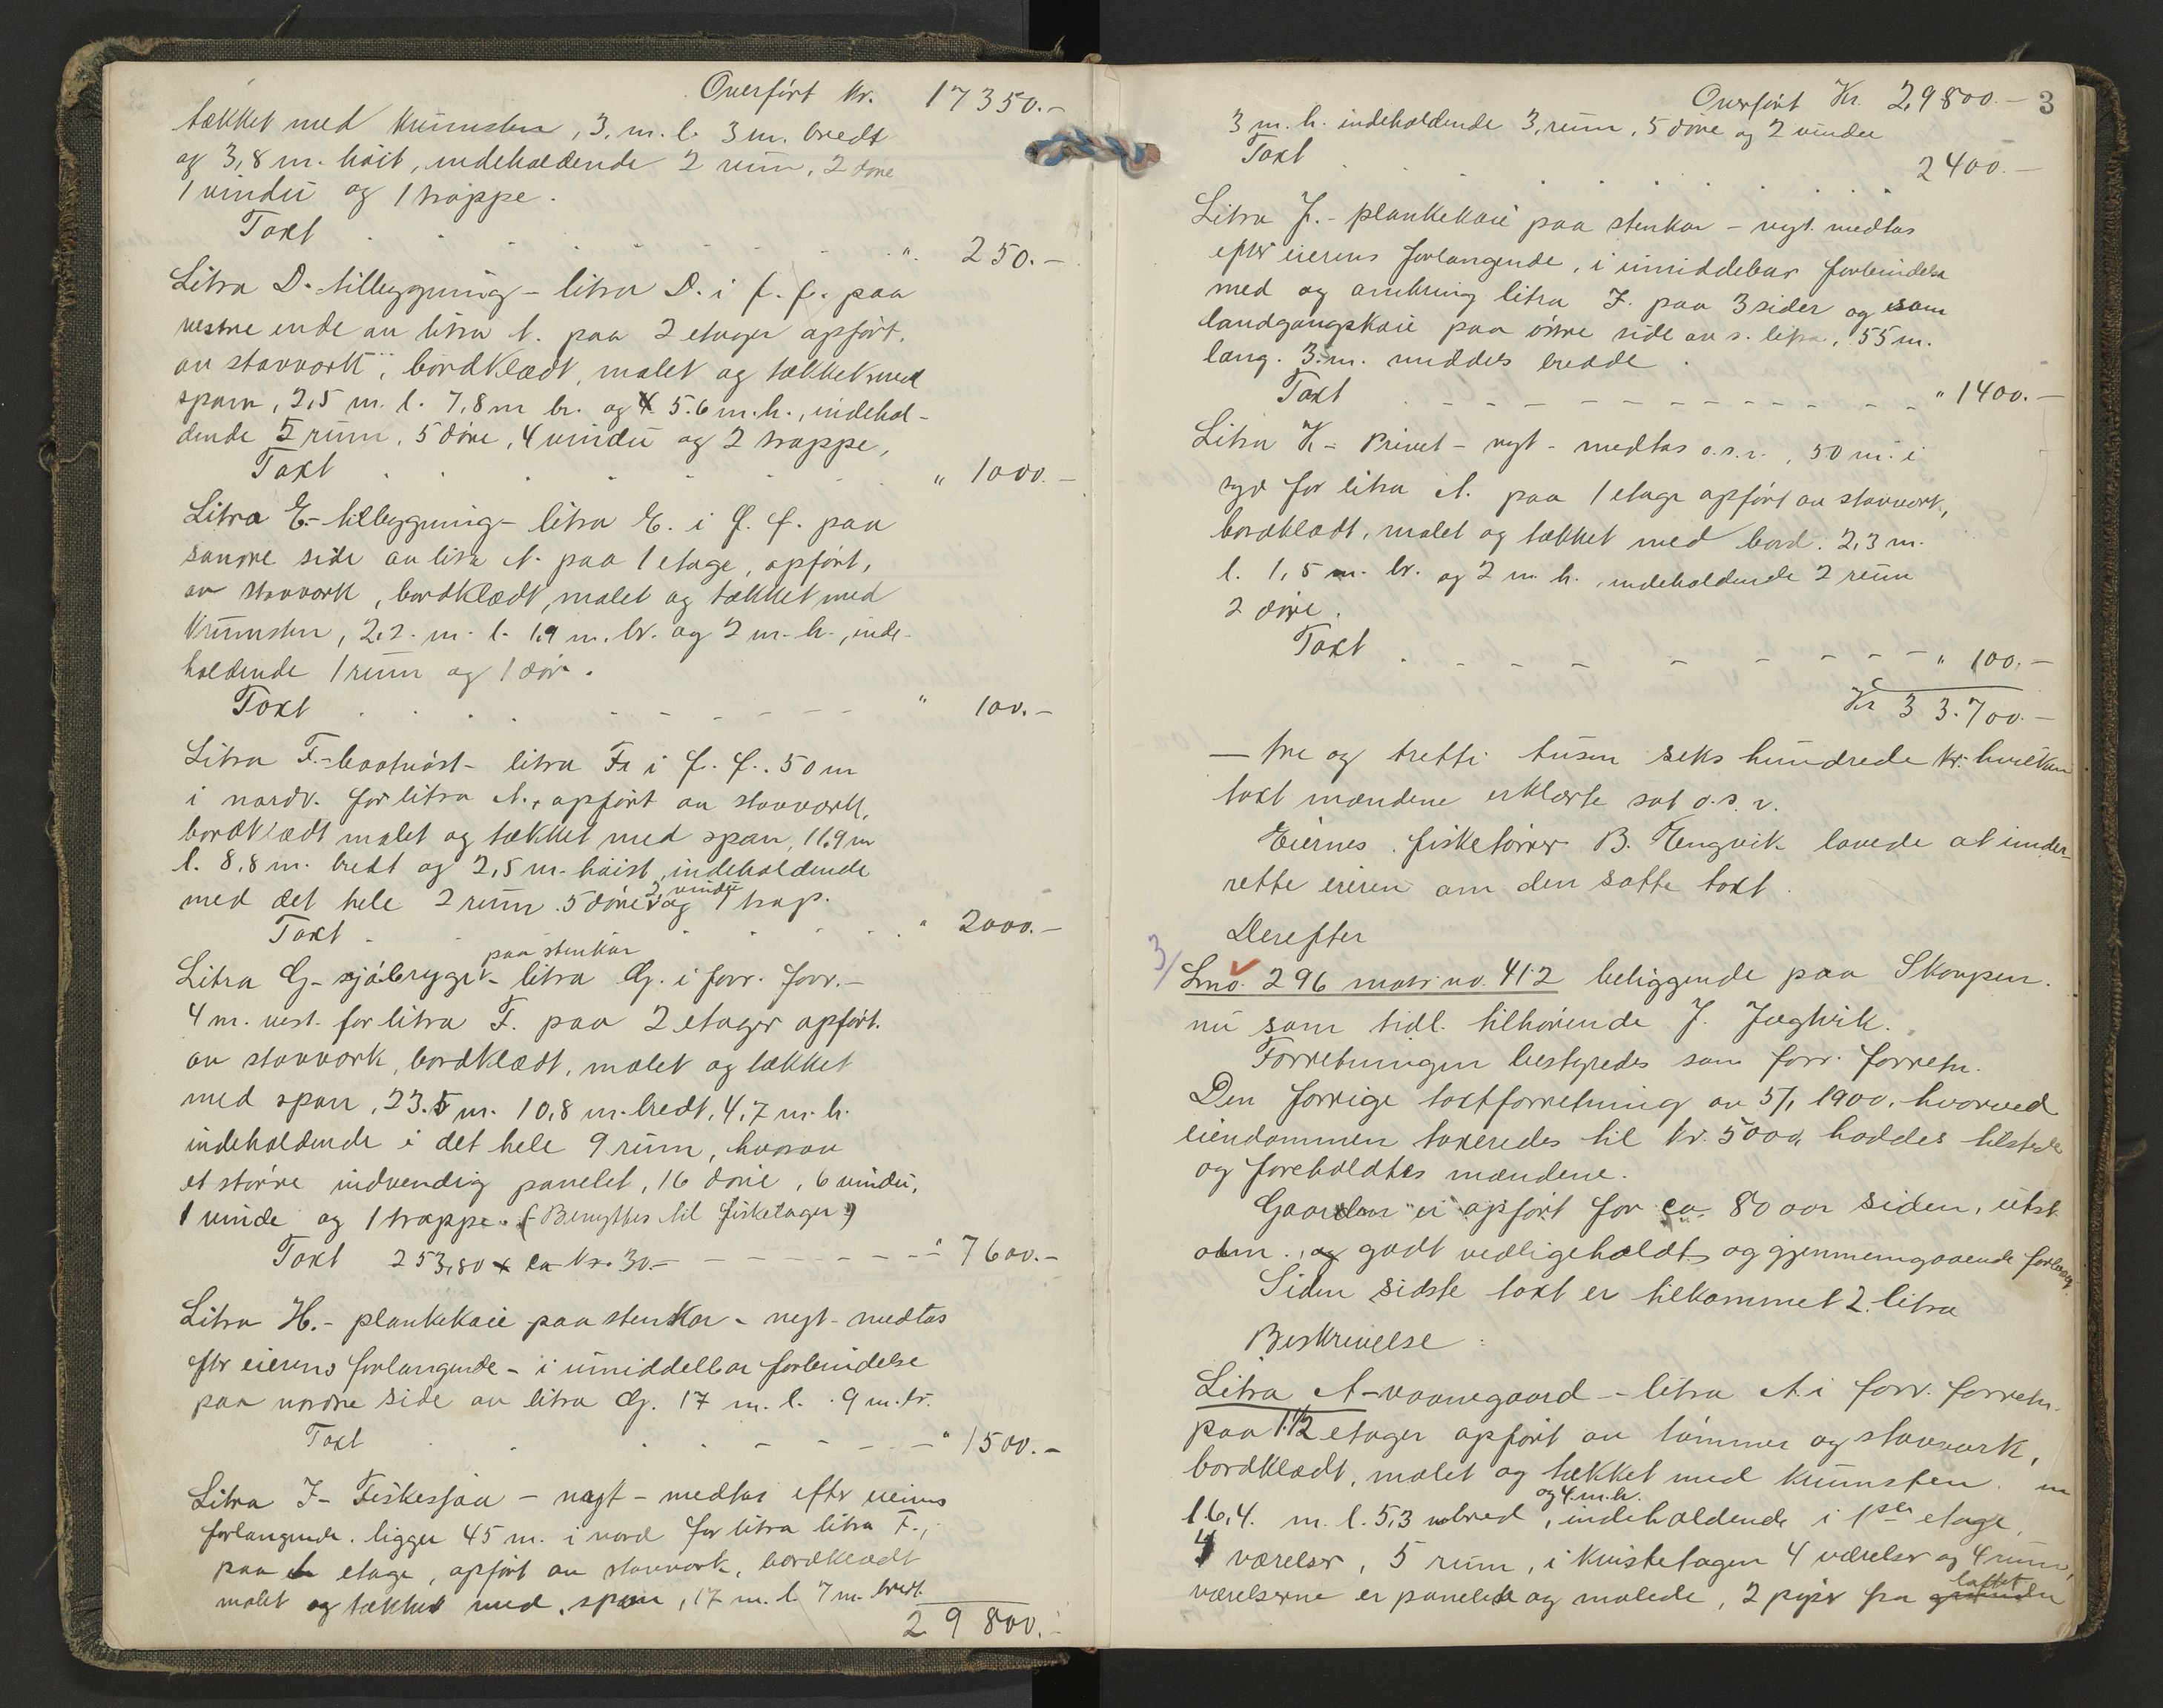 Overført kr. 17350.-
tækket med krumsten, 3. m. l. 3 m. bredt
og 3,8 m. høit, indeholdende 2 rum, 2 døre
1 vindu og 1 trappe.
Taxt . . . . . . . . ". 250.-
Litra D. tilbygning - litra D. i f. f. paa
vestre ende av litra A. paa 2 etager opført,
av stavverk, bordklædt, malet og tækket med
spaan, 2,5 m. l. 7,8 m br. og 5.6 m. h., indehol-
dende 5 rum, 5 døre, 4 vindu og 2 trappe,
Taxt . . . . . . . " 1000.-
Litra E.- tilbygning - litra E. i f. f. paa
søndre side av litra A. paa 1 etage, opført,
av stavverk, bordklædt, malet og tækket med
krumsten, 2,2. m. l. 1,9 m. br. og 2 m. h., inde-
holdende 1 rum og 1 dør.
Taxt . . . . - - - - - - " 100.-
Litra F.- baatnøst - litra F. i f. f. 50 m
i nordv. for litra A., opført av stavverk,
bordklædt malet og tækket med spaan, 11,9 m
l. 8,8 m. bredt og 2,5 m. høist, indeholdende
med det hele 2 rum. 5 døre 2 vindu og 1 trap.
Taxt . . . . . . . " 2000.-
paa stenkar
Litra G - sjøbrygge - litra G. i forr. forr. -
4 m. vest. for litra F. paa 2 etager opført.
av stavverk, bordklædt, malet og tækket
med spaan, 23.5 m. 10,8 m. bredt, 4,7 m. h.
indeholdende i det hele 9 rum, hvorav
et større indvendig panelet, 16 døre, 6 vindu,
1 vinde og 1 trappe. (Benyttes til fisketager)
Taxt 253,80 x ca kr. 30.- - - - - - - " 7600.-
Litra H. - plankekaie paa stenkar - nyt - medtas
efter eierens forlangende - i umiddelbar forbindelse
paa nordre side av litra G. 17 m. l. . 9 m. br.
Taxt . . . . - - - - - " 1500.-
Litra I - Fiskesjaa - nyt - medtas efter eierens
forlangende. ligger 45 m. i nord for litra litra F.,
paa 1 etage, opført av stavverk, bordklædt
malet og tækket med spaan, 17 m. l. 7 m. bredt.
29800.-
Overført Kr. 29800.- 3
3 m. h. indeholdende 3, rum, 5 døre og 2 vindu
Taxt . . . . . . . . 2400.-
Litra J. - plankekaie paa stenkar - nyt. medtas
efter eierens forlangende, i umiddelbar forbindelse
med og omkring litra I. paa 3 sider og som
landgangskaie paa østre side av s. litra, 55 m.
lang. 3. m. middels bredde .
Taxt . - - - - - - - - - - - " 1400.-
Litra K - Privet - nyt - medtas o.s.v., 50 m. i
syd for litra A. paa 1 etage opført av stavverk,
bordklædt, malet og tækket med bord. 2,3 m.
l. 1,5 m. br. og 2 m. h. indeholdende 2 rum
2 døre.
Taxt . - - - - - - - - " 100.-
Kr 33.700.-
— tre og tretti tusen seks hundrede kr. hvilken
taxt mændene erklærte sat o.s.v.
Eiernes . fisketørrer B. Engvik lovede at under-
rette eieren om den satte taxt.
Derefter
3/ Lno. 296 matr. no. 412 beliggende paa Skorpen.
nu som tidl. tilhørende J. Jægtvik.
Forretningen bestyredes som forr. forretn.
Den forrige taxtforretning av 5/1 1900, hvorved
eiendommen taxeredes til kr. 5000, haddes tilstede
og foreholdtes mændene.
Gaarden er opført for ca. 80 aar siden, utst.
alm., godt vedligeholdt og gjennemgaaende
Siden sidste taxt er tilkommet 2. litra
Beskrivelse:
Litra A - vaanegaard - litra A. i forr. forretn.
paa 1 1/2 etager opført av tømmer og stavverk,
bordklædt, malet og tækket med krumsten. m
og 4. m. h.
16,4. m. l. 5,3 m bred, indeholdende i 1ste etage,
4 værelser, 5 rum, i kvistetagen 4 værelser og 4 rum,
værelserne er panelede og malede, 2 piper fra grunden loftet